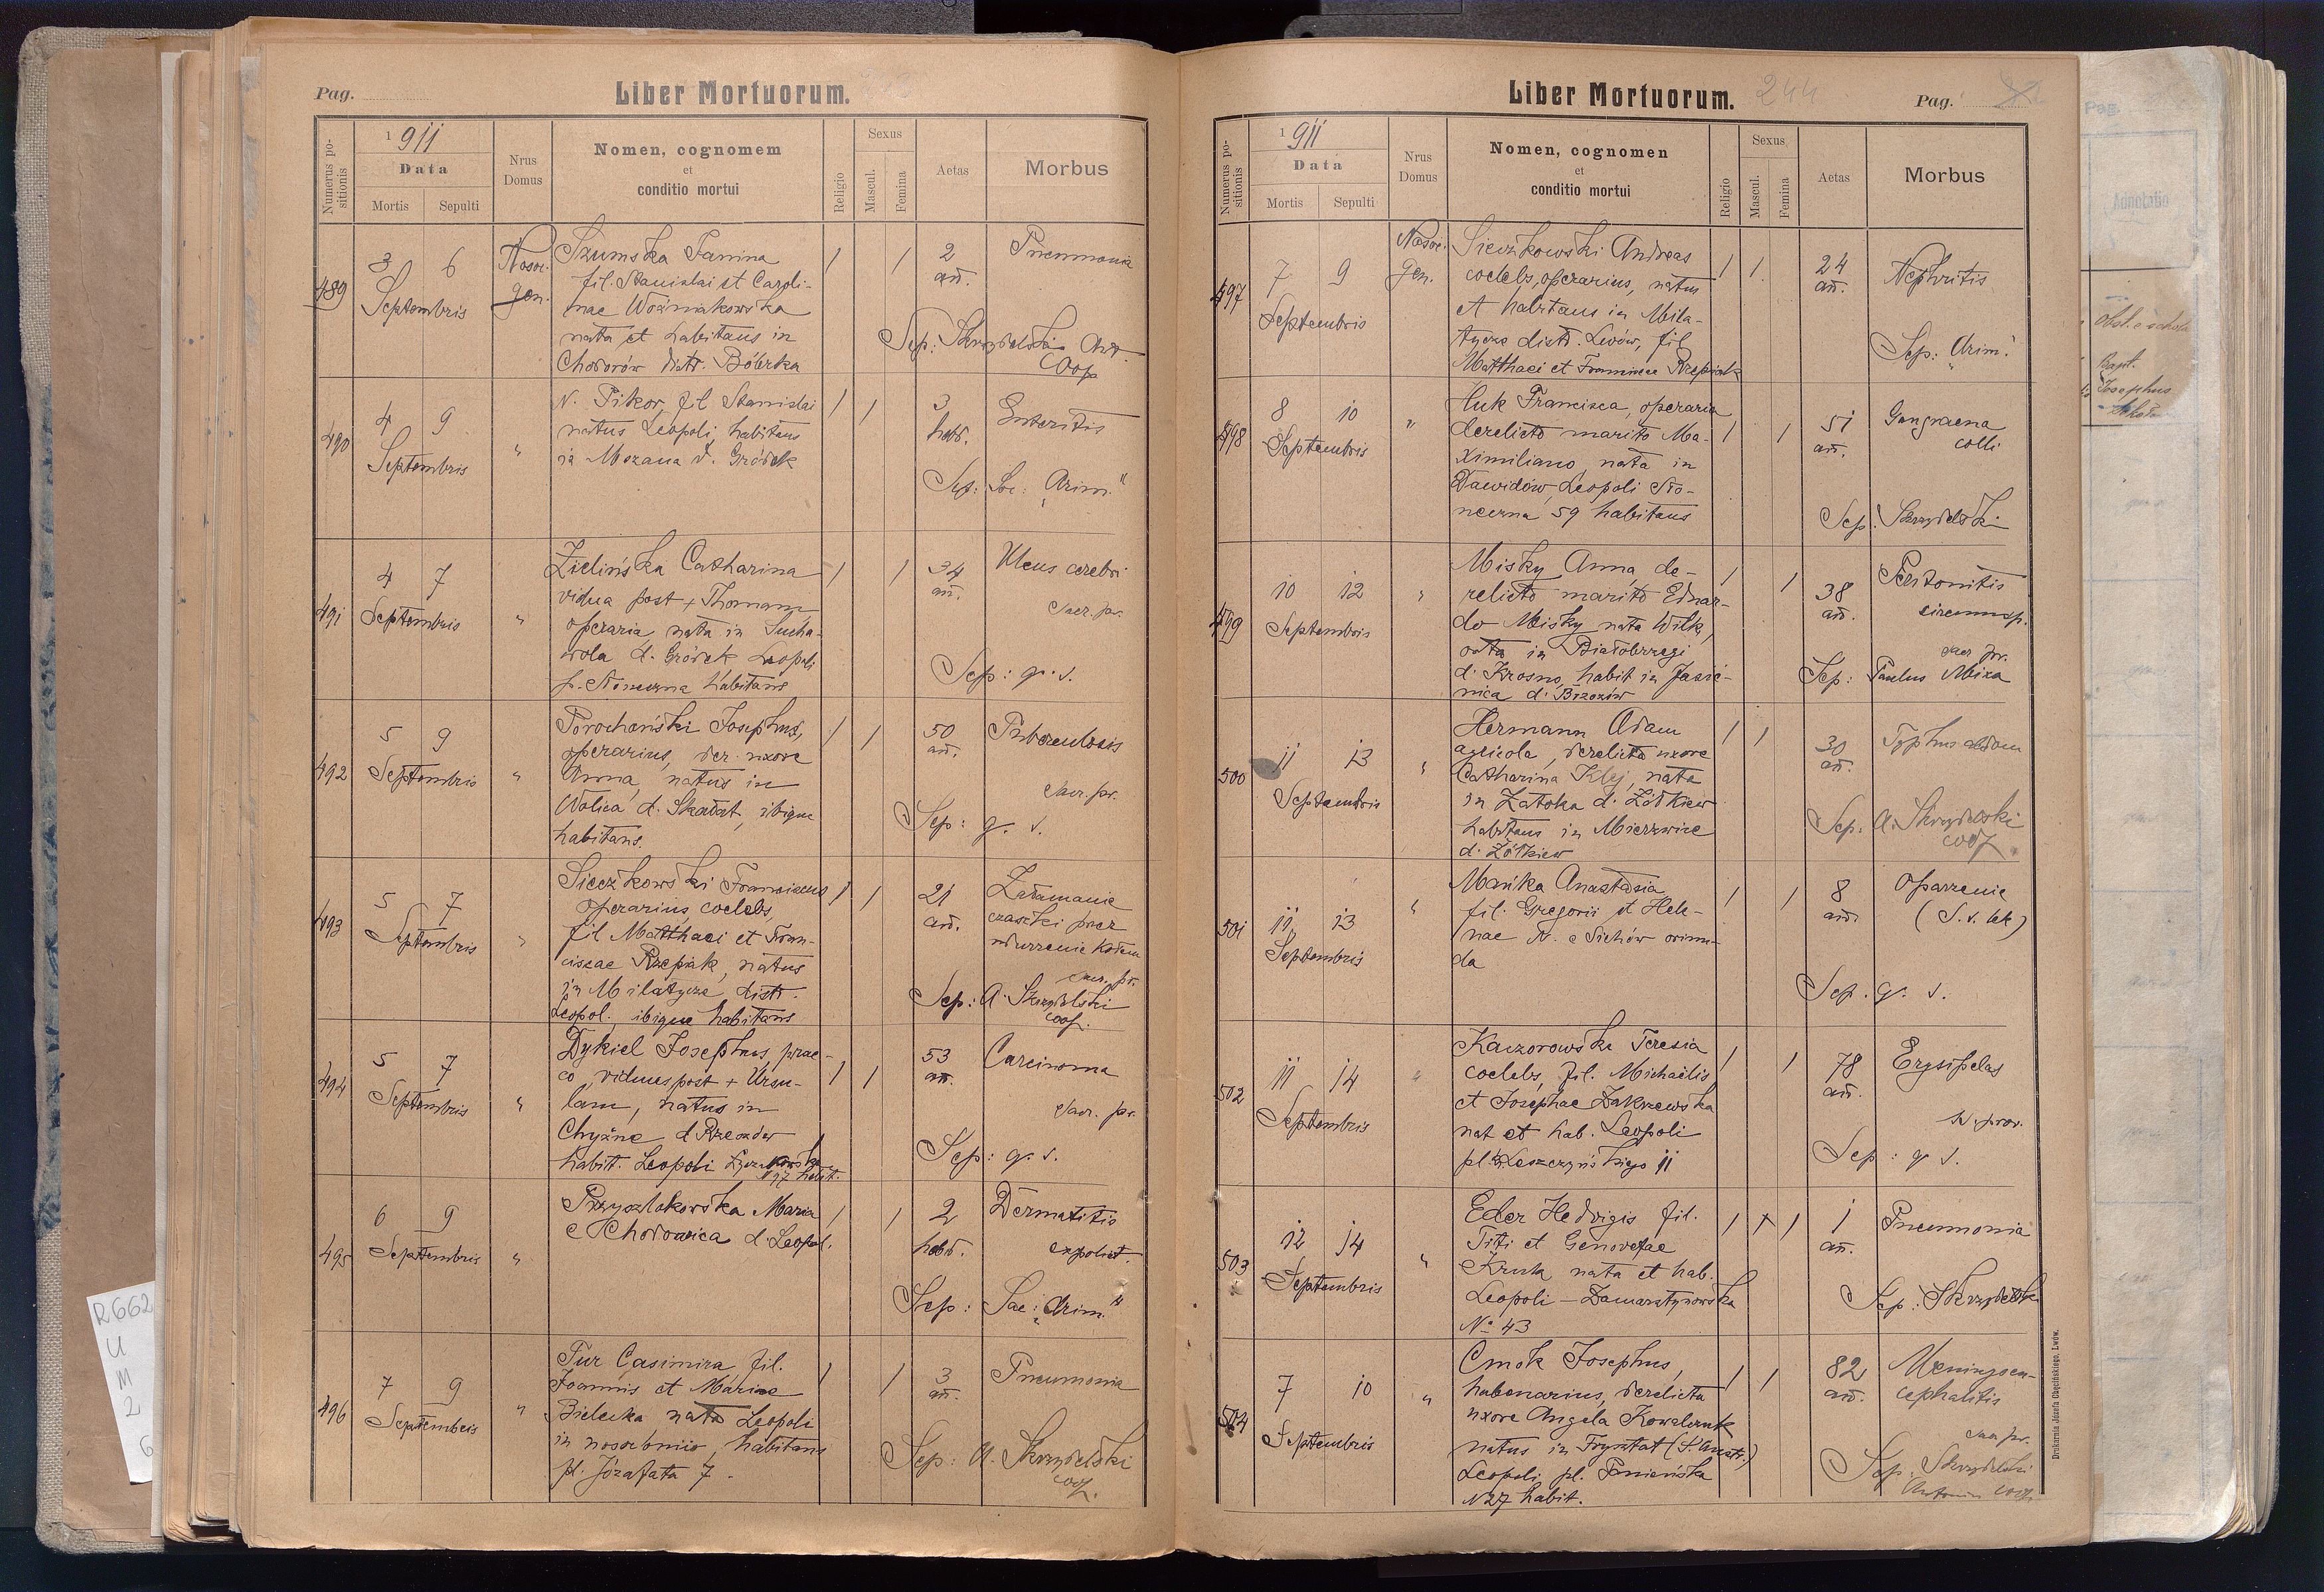 Pag.
Liber Mortuorum.
Numerus positionis
1911
Data
Mortis
Sepulti
Nrus Domus
Nomen, cognomem
et
conditio mortui
Religio
Sexus
Mascul.
Femina
Aetas
Morbus
489
3 6
Septembris
Nosoc. gen.
Szumska Janina
fil. Stanislai et Caroli-
nae Woźniakowska
nata et habitans in
Chodorów distr. Bóbrka
1 1
2 an.
Pneumonia
Sep: Skrzydelski Ant.
Coop
490
4 9
Septembris
"
N. Pikor, fil Stanislai
natus Leopoli, habitans
in Mszana d. Gródek
1 1
3 hebd.
Enteritis
Sep: Soc: "Arim."
491
4 7
Septembris
"
Zielińska Catharina
vidua post + Thomam
operaria, nata in Sucha-
wola d. Gródek Leopoli
p. Słoneczna habitans
1 1
34 an.
Ulcus cerebri
Sacr. pr.
Sep: q. s.
492
5 9
Septembris
"
Porochoński Josephus,
operarius, der. uxore
Anna, natus in
Wolica d. Skałat, ibique
habitans.
1 1
50 an.
Tuberculosis
Sacr. pr.
Sep: q. s.
493
5 7
Septembris
"
Sieczkowski Franciscus
operarius, coelebs,
fil Matthaei et Fran-
ciscae Rzepiak, natus
in Milatycze distr.
Leopol., ibique habitans
1 1
21 an.
Załamanie
czaszki przez
uderzenie kołem
Sacr. pr.
Sep: A. Skrzydelski
coop.
494
5 7
Septembris
"
Dykiel Josephus, prae-
co, viduus post + Ursu-
lam, natus in
Chyżne d Rzeszów
habit. Leopoli Łyczakowska
197 habit.
1 1
53 an.
Carcinoma
Sacr. pr.
Sep: q. s.
495
6 9
Septembris
"
Przyszlakowska Maria
e Chodowica d. Leopol.
1 1
2 hebd.
Dermatitis
expoliat.
Sep: Soc: "Arim."
496
7 9
Septembris
"
Pur Casimira fil.
Joannis et Mariae
Bielecka nata Leopoli
in nosocomio, habitans
pl. Józafata 7.
1 1
3 an.
Pneumonia
Sep: A. Skrzydelski
coop.
Liber Mortuorum.
244
Pag.
Numerus positionis
1911
Data
Mortis
Sepulti
Nrus Domus
Nomen, cognomen
et
conditio mortui
Religio
Sexus
Mascul.
Femina
Aetas
Morbus
497
7 9
Septembris
Nosoc. Gen.
Sieczkowski Andreas
coelebs, operarius, natus
et habitans in Mila-
tycze distr. Lwów, fil
Matthaei et Franciscae Rzepiak
1 1
24 an.
Nephritis
Sep: "Arim."
498
8 10
Septembris
"
Huk Francisca, operaria
derelicto marito Ma-
ximiliano, nata in
Dawidów, Leopoli Sło-
neczna 59 habitans
1 1
51 an.
Gangraena
colli
Sep: Skrzydelski
499
10 12
Septembris
"
Misky Anna, de-
relicto marito Eduar-
do Misky nata Wilk,
orta in Białobrzegi
d. Krosno, habit in Jasie-
nica d. Brzozów
1 1
38 an.
Peritonitis
circumsp.
Sacr pr.
Sep: Paulus Mixa
500
11 13
Septembris
"
Hermann Adam
agricola, derelicta uxore
Catharina Klej, nata
in Zatoka d. Żółkiew
habitans in Mierzwice
d. Żółkiew
1 1
30 an.
Typhus abdom
Sep: A. Skrzydelski
coop
501
11 13
Septembris
"
Mańka Anastasia
fil. Gregorii et Hele-
nae N. e Sichów oriun-
da
1 1
8 an.
Oparzenie
Sep. q. s.
502
11 14
Septembris
"
Kaczorowska Teresia
coelebs, fil. Michaelis
et Josephae Zakrzewska
nat et hab. Leopoli
pl. Leszczyńskiego 11
1 1
78 an.
Erysipelas
N. prov.
Sep: q s.
503
12 14
Septembris
"
Eder Hedvigis fil.
Titi et Genovefae
Kruk nata et hab.
Leopoli – Zamarstynowska
No 43
1 1
1 an.
Pneumonia
Sep: Skrzydelski
504
7 10
Septembris
"
Cmok Josephus,
habenarius, derelicta
uxore Angela Kowalczuk
natus in Frysztat (Ś. Austr.)
Leopoli, pl. Panieńska
N 27 habit.
1 1
82 an.
Meningoen-
cephalitis
Sacr pr.
Sep. Skrzydelski
Antonius coop.
Drukarnia Józefa Chęcińskiego, Lwów.
Pag.
Adnotatio
Obst. e schola
Bapt.
Josephus
R662
U
M
2
6